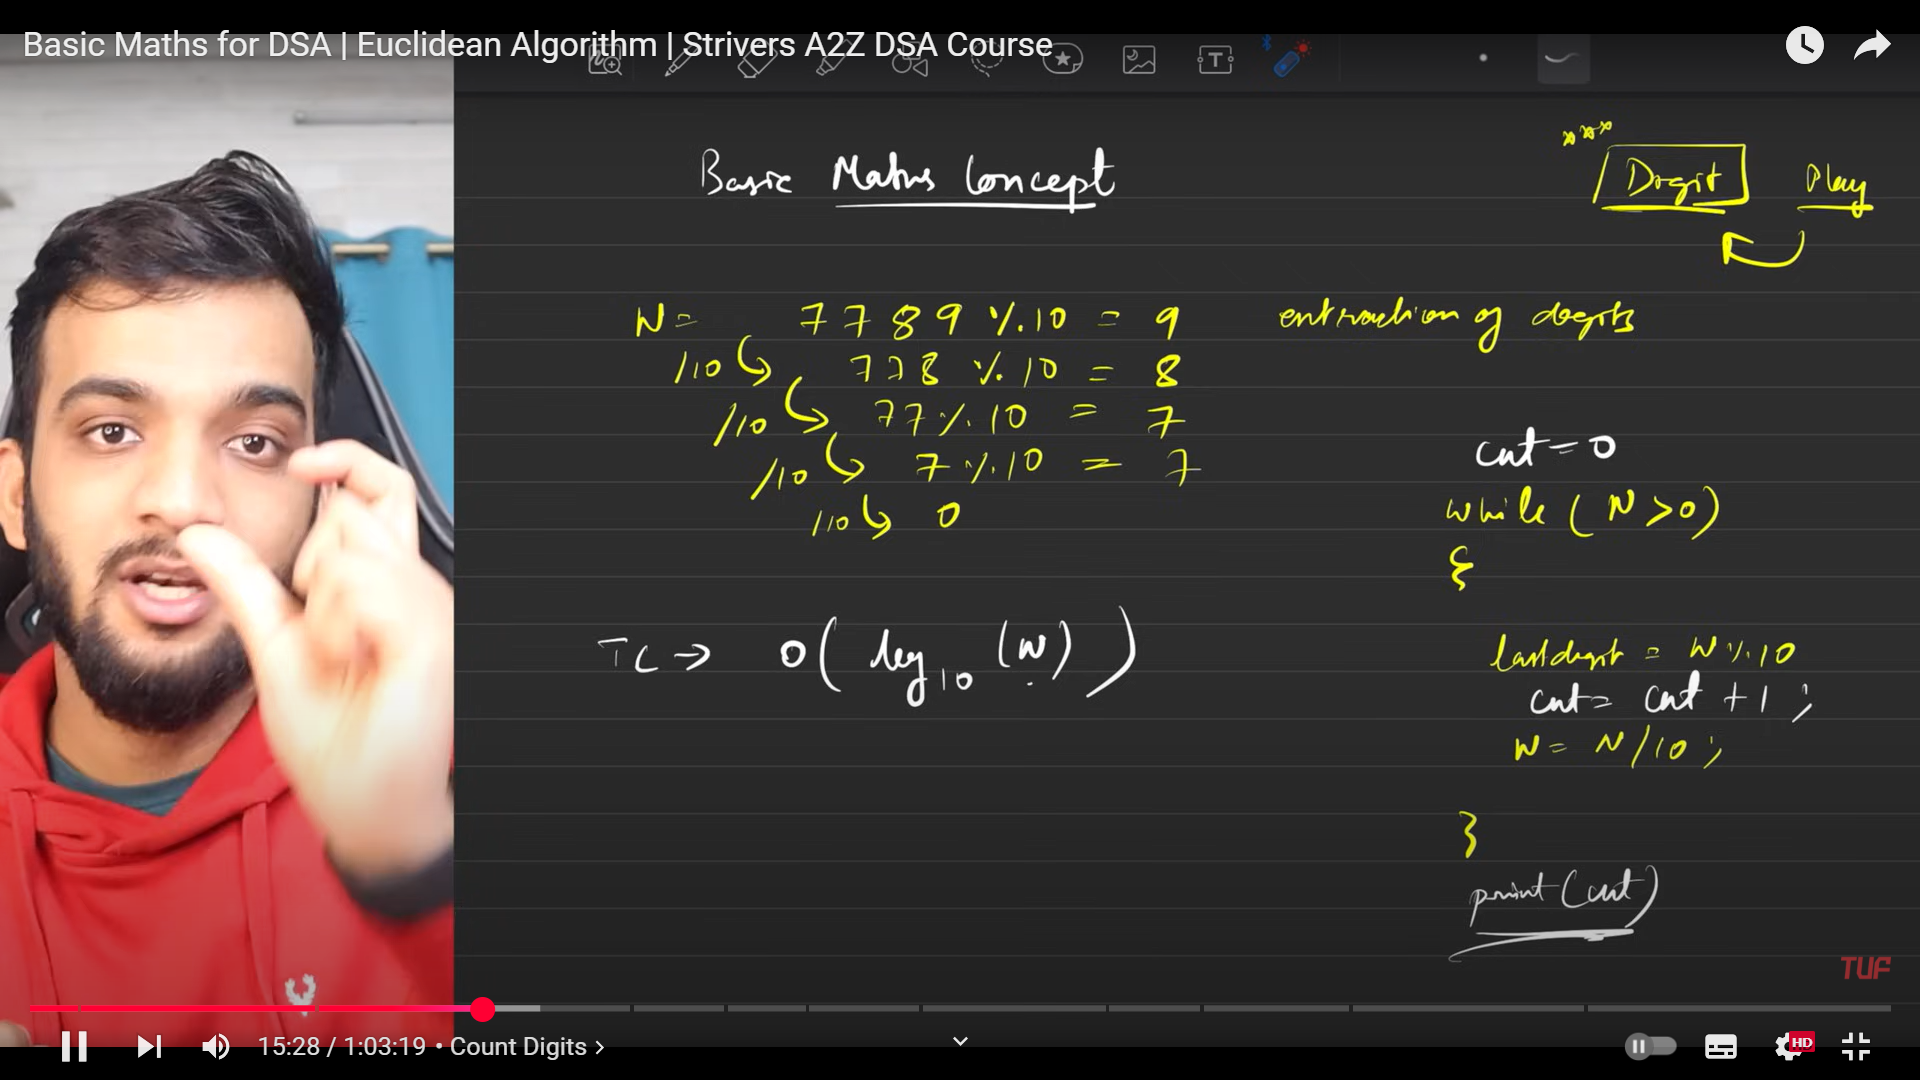 Basic Maths for DSA | Euclidean Algorithm | Strivers A2Z DSA Course
Basic Maths Concept
*** Digit Play
N = 7789 % 10 = 9
/10 778 % 10 = 8
/10 77 % 10 = 7
/10 7 % 10 = 7
/10 0
extraction of digits
TC → O(log10 (N))
cnt = 0
while (N > 0)
{
lastdigit = N % 10
cnt = cnt + 1;
N = N/10;
}
print(cnt)
TUF
15:28 / 1:03:19 • Count Digits >
HD